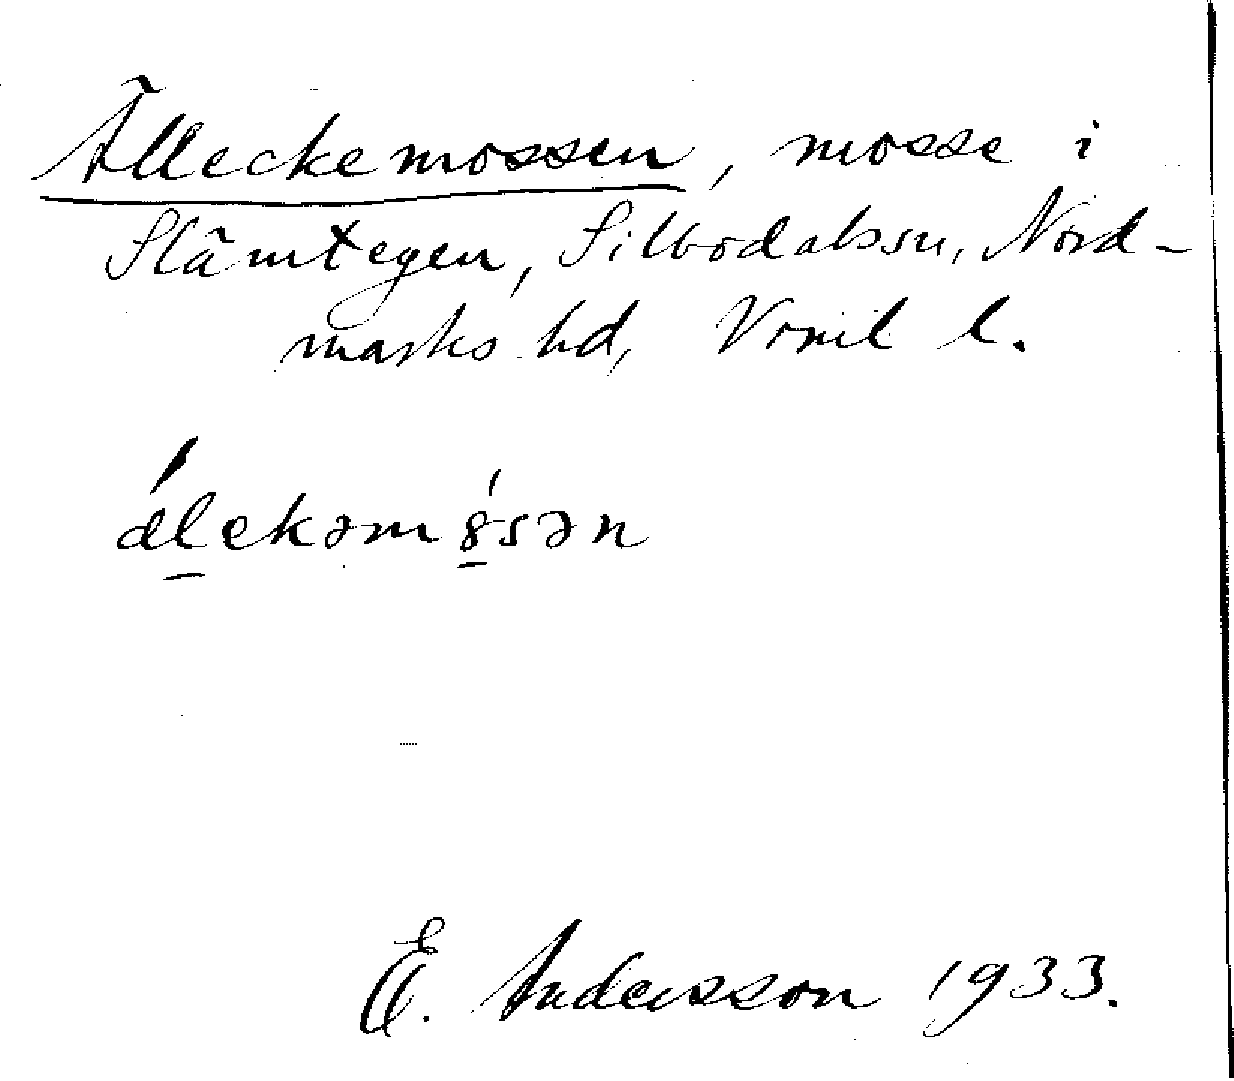 Älleckemossen, mosse i
Slämtegen, Silbodals sn, Nord-
marks hd, Vrml l.
ǽlekəmósən
E. Andersson 1933.